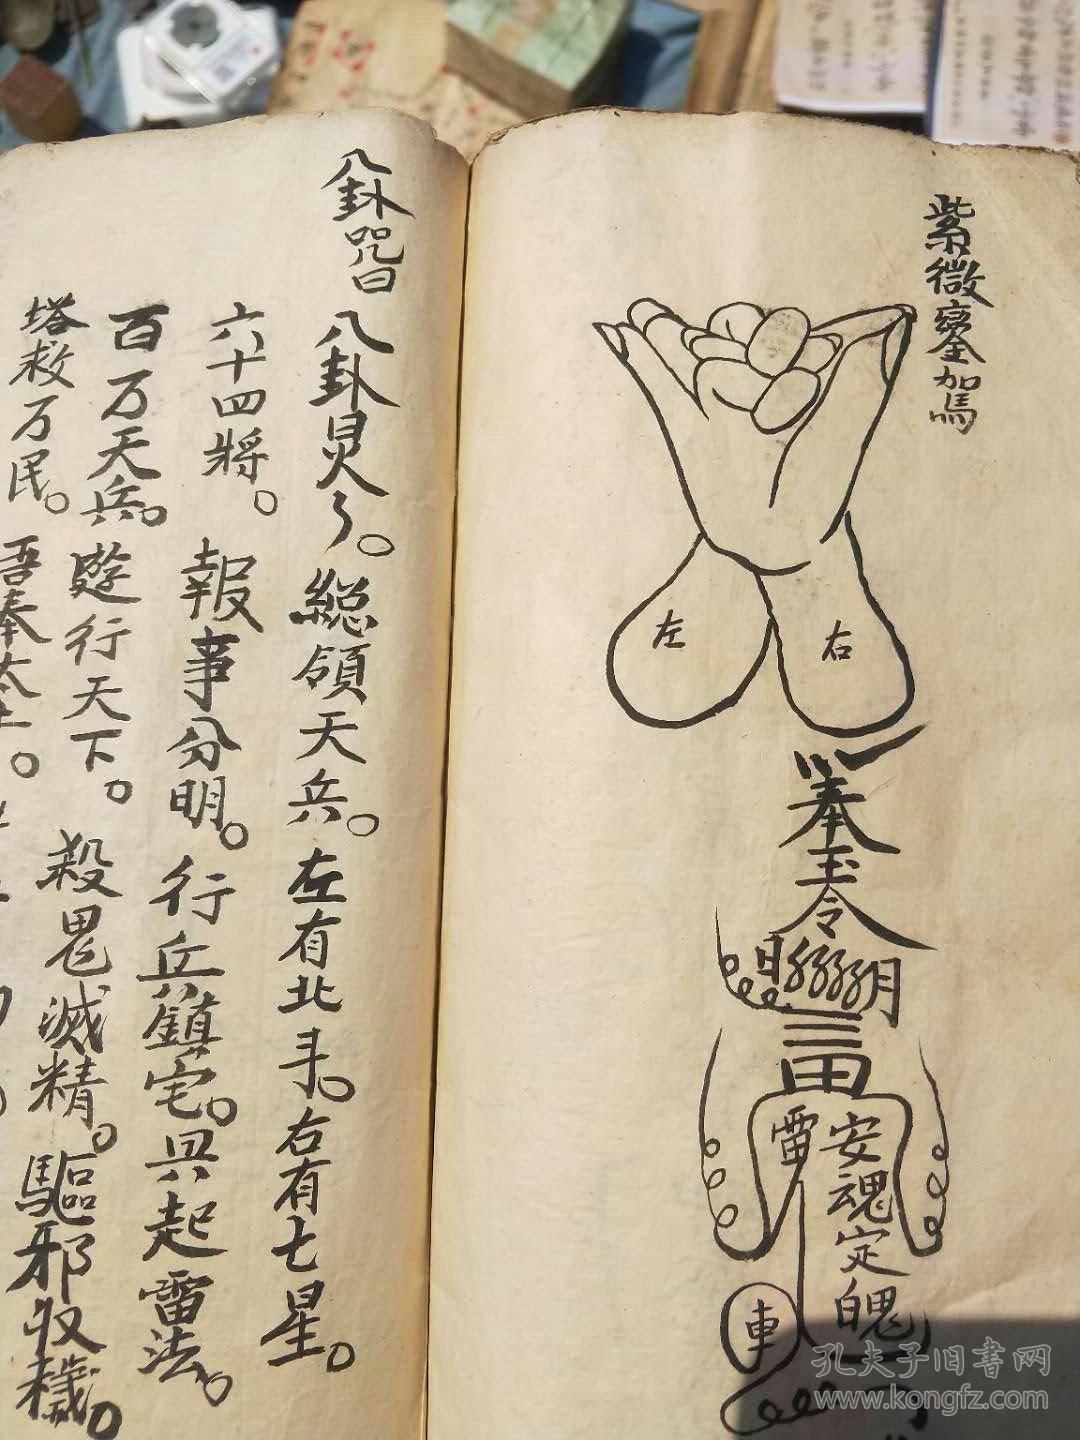 紫微鑾駕
左
右
奉玉令
日月
雷
安魂定魄
車
八卦咒曰
八卦灵灵。總領天兵。左有北斗。右有七星。
六十四將。報事分明。行兵鎮宅。興起雷法。
百万天兵。遊行天下。殺鬼滅精。驅邪收穢。
塔救万民。吾奉太上。
孔夫子旧书网
www.kongfz.com